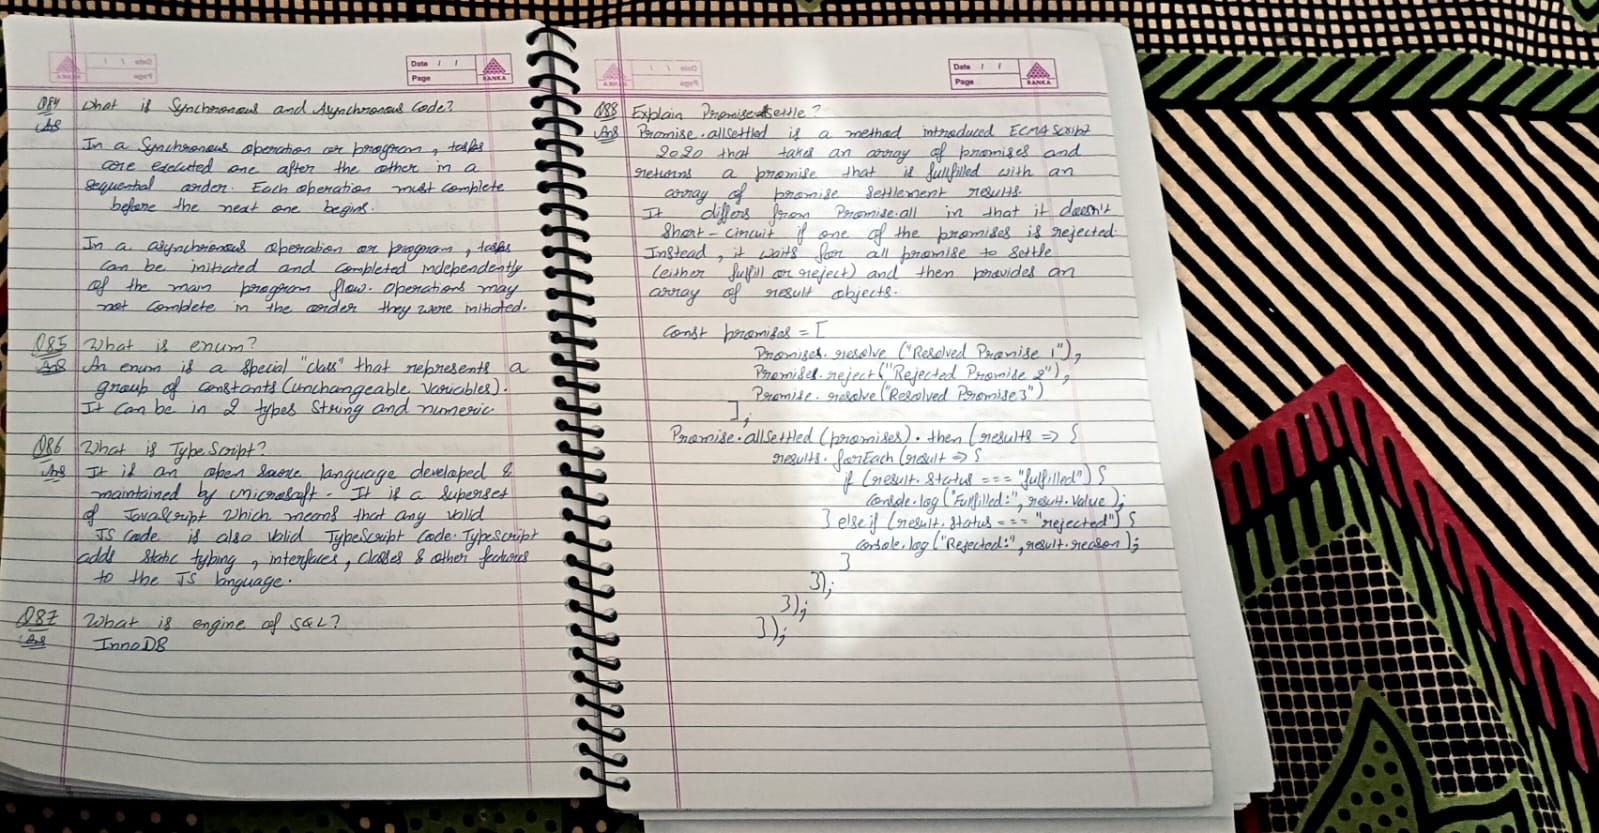 Date / /
Page
RANKA
Q84 What is Synchronous and Asynchronous Code?
Ans
In a Synchronous operation or program, tasks
are executed one after the other in a
sequential order. Each operation must complete
before the next one begins.
In a asynchronous operation or program, tasks
can be initiated and completed independently
of the main program flow. Operations may
not complete in the order they were initiated.
Q85 What is enum?
Ans An enum is a special "class" that represents a
group of constants (unchangeable variables).
It can be in 2 types String and numeric
Q86 What is TypeScript?
Ans It is an open source language developed &
maintained by Microsoft. It is a superset
of JavaScript which means that any valid
JS code is also valid TypeScript code. TypeScript
adds static typing, interfaces, classes & other features
to the JS language.
Q87 What is engine of SQL?
Ans InnoDB
Date / /
Page
RANKA
Q88 Explain Promise.settle?
Ans Promise.allsettled is a method introduced ECMAScript
2020 that takes an array of promises and
returns a promise that is fullfilled with an
array of promise settlement results.
It differs from Promise.all in that it doesn't
short-circuit if one of the promises is rejected.
Instead, it waits for all promise to settle
(either fulfill or reject) and then provides an
array of result objects.
const promises = [
Promises.resolve ("Resolved Promise 1"),
Promises.reject ("Rejected Promise 2"),
Promise.resolve ("Resolved Promise 3")
];
Promise.allsettled (promises).then (results => {
results.forEach (result => {
if (result.status === "fulfilled") {
console.log ("Fulfilled:", result.value);
} else if (result.status === "rejected") {
console.log ("Rejected:", result.reason);
}
});
});
});